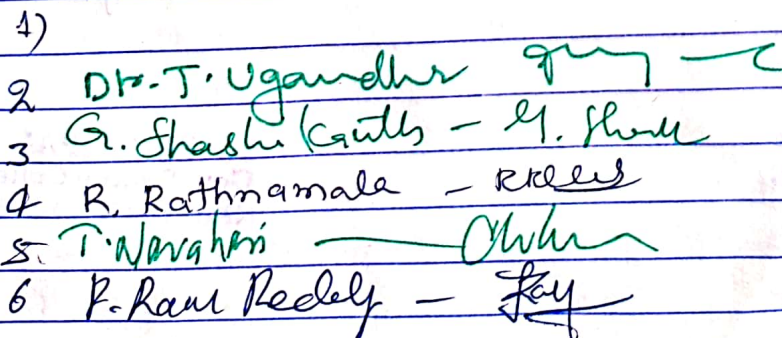 1)
2 Dr. T. Ugandhr
3 G. Shashi Kanth - G. Shash
4 R. Rathnamala -
5. T. Narahari
6 P. Ram Reddy -